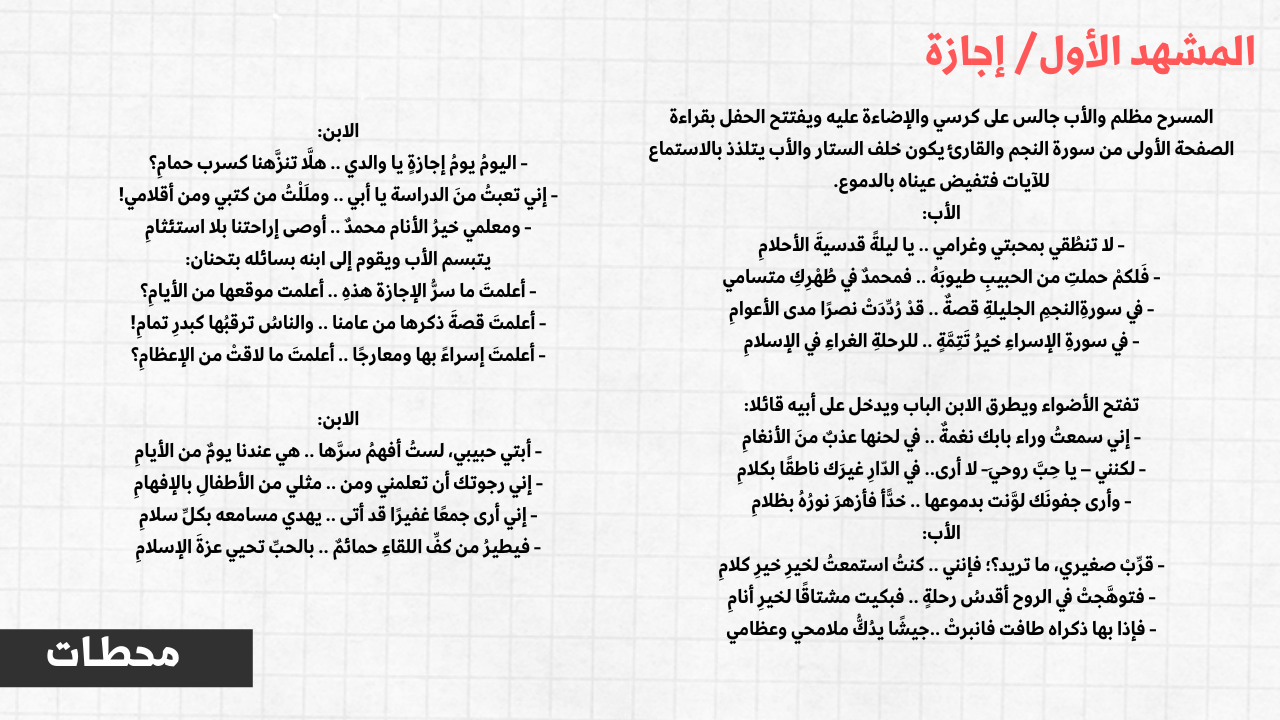 المشهد الأول/ إجازة
المسرح مظلم والأب جالس على كرسي والإضاءة عليه ويفتتح الحفل بقراءة
الصفحة الأولى من سورة النجم والقارئ يكون خلف الستار والأب يتلذذ بالاستماع
للآيات فتفيض عيناه بالدموع.
الأب:
- لا تنطُقي بمحبتي وغرامي .. يا ليلةً قدسيةَ الأحلامِ
- فَلكمْ حملتِ من الحبيبِ طيوبَهُ .. فمحمدٌ في طُهْرِكِ متسامي
- في سورةِالنجمِ الجليلةِ قصةٌ .. قدْ رُدِّدَتْ نصرًا مدى الأعوامِ
- في سورةِ الإسراءِ خيرُ تَتِمَّةٍ .. للرحلةِ الغراءِ في الإسلامِ
تفتح الأضواء ويطرق الابن الباب ويدخل على أبيه قائلا:
- إني سمعتُ وراء بابك نغمةٌ .. في لحنها عذبٌ منَ الأنغامِ
- لكنني – يا حِبَّ روحيَ- لا أرى.. في الدّارِ غيرَك ناطقًا بكلامِ
- وأرى جفونَك لوَّنت بدموعها .. خدًّأ فأزهرَ نورُهُ بظلامِ
الأب:
- قرِّبْ صغيري، ما تريد؟؛ فإنني .. كنتُ استمعتُ لخيرِ خيرِ كلامِ
- فتوهَّجتْ في الروح أقدسُ رحلةٍ .. فبكيت مشتاقًا لخيرِ أنامِ
- فإذا بها ذكراه طافت فانبرتْ ..جيشًا يدُكُّ ملامحي وعظامي
الابن:
- اليومُ يومُ إجازةٍ يا والدي .. هلَّا تنزَّهنا كسرب حمامِ؟
- إني تعبتُ منَ الدراسة يا أبي .. وملَلْتُ من كتبي ومن أقلامي!
- ومعلمي خيرُ الأنام محمدٌ .. أوصى إراحتنا بلا استئثامِ
يتبسم الأب ويقوم إلى ابنه بسائله بتحنان:
- أعلمتَ ما سرُّ الإجازة هذهِ .. أعلمت موقعها من الأيامِ؟
- أعلمتَ قصةَ ذكرها من عامنا .. والناسُ ترقبُها كبدرِ تمامِ!
- أعلمتَ إسراءً بها ومعارجًا .. أعلمتَ ما لاقتْ من الإعظامِ؟
الابن:
- أبتي حبيبي، لستُ أفهمُ سرَّها .. هي عندنا يومٌ من الأيامِ
- إني رجوتك أن تعلمني ومن .. مثلي من الأطفالِ بالإفهامِ
- إني أرى جمعًا غفيرًا قد أتى .. يهدي مسامعه بكلِّ سلامِ
- فيطيرُ من كفِّ اللقاءِ حمائمٌ .. بالحبِّ تحيي عزةَ الإسلامِ
محطات